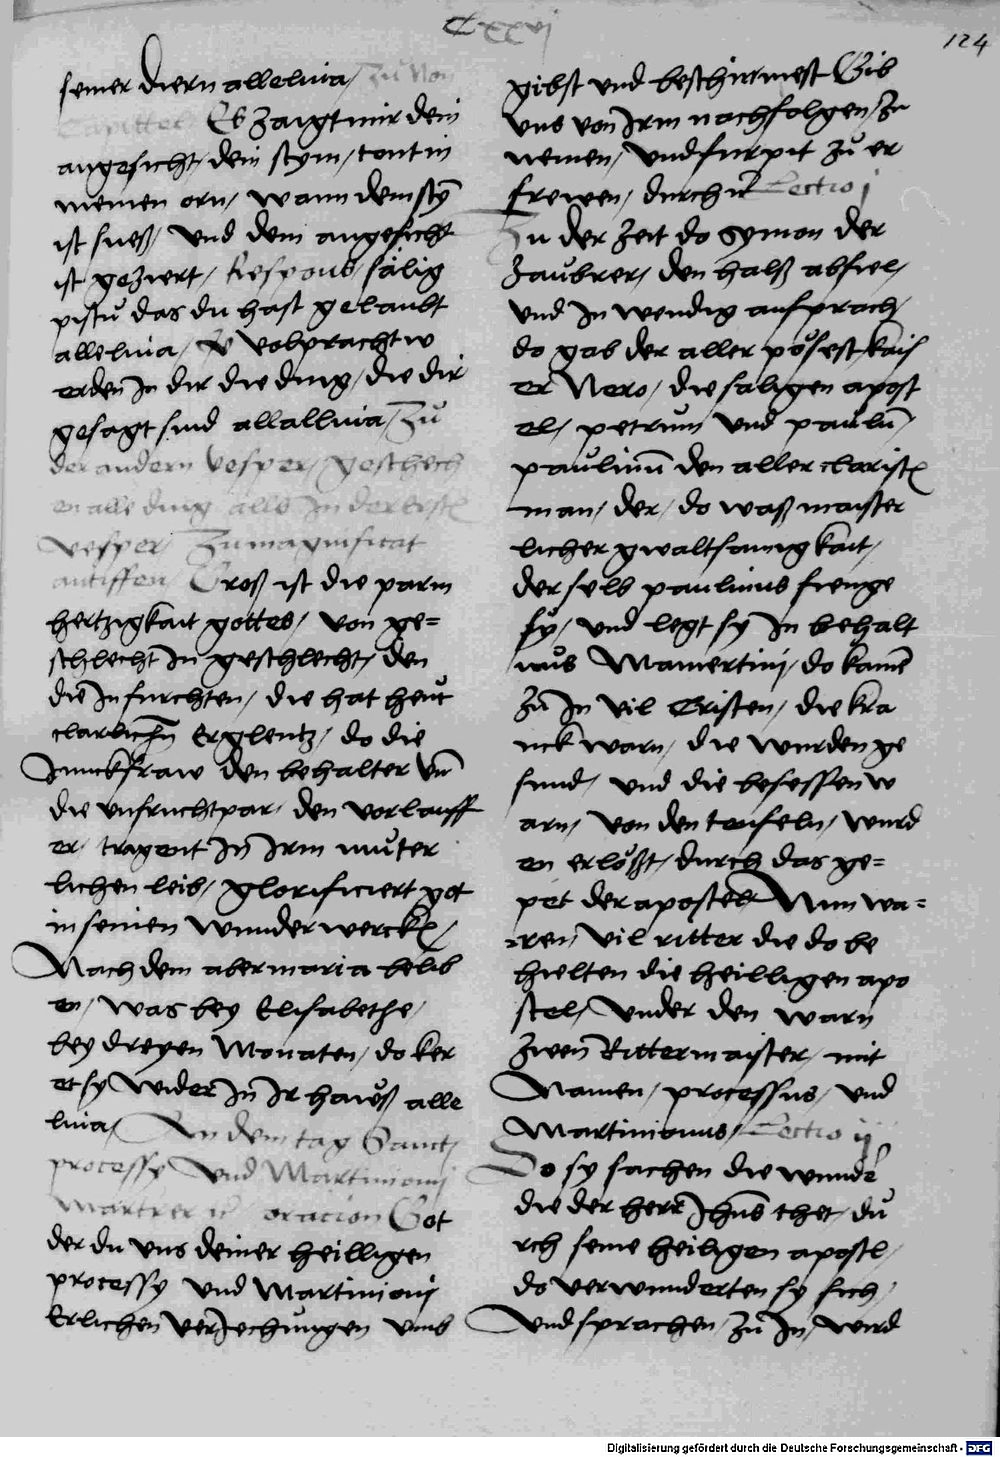 Clxxvj
124
seiner diern alleluia / Zu Non
Capittel Eß zaigt mir dein
angesicht / dein stym / tont in
meinen orn / wann dein stȳ
ist sueß / und dein angesicht
ist geziert / Respons sälig
pistu das du hast gelaubt
alleluia / V volpracht w
erden In dir die ding / die dir
gesagt sind allalluia / Zu
der andern vesper / geschech
en alle ding alls In der erstē
vesper / Zu magnificat
antiffen / Groß ist die parm
hertzigkait gottes / von ge=
schlecht In geschlecht / den
die In furchten / die hat heut
clarlichn̄ Erglentz / do die
Junckfraw den behalter vn̄
die unfruchtpar / den vorlauff
er / tragent In Irm muter
lichen leib / glorificiert got
in seinen wunder werckē /
Nach dem aber maria beleib
en / was bey Elisabethe /
bey dreyen Monaten / do ker
et sy wider In Ir hawß alle
luia / An dem tag Sanct
processy und Martiniani
martrer oracion Got
der du uns deiner heilligen
processy und Martiniani
Erlichen verJechungen umb
gibst und beschirmest Gib
uns von Irm nachfolgen / zu
nemen / und furpit zu er
frewen / durch Lectio j
Zu der zeit do Symon der
Zaubrer / den halß abfiel /
und Inwendig aufsprach /
do gab der aller pösest kais
er Nero / die säligen apost
el / petrum und paulū /
paulinū den aller claristē
man / der / do waß maister
licher gwaltsamigkait /
der selb paulinus fienge
sy / und legt sy In behalt
nus Mamertini / do kamē
zu In vil Cristen / die kra
nck warn / die wurden ge
sund / und die besessen w
arn / von den teufeln / wurd
en erlößt / durch das ge=
pet der apostel / Nun wa=
ren / vil ritter die do be
hielten die heilligen apo
stel / under den warn
zwen Rittermaister / mit
Namen / processus / und
Martinianus / Lectio ij
Do sy sachen die wunder
die der herr Jhūs thet / du
rch seine heiligen apostl /
do verwunderten sy sich /
und sprachen / zu In / wird
Digitalisierung gefördert durch die Deutsche Forschungsgemeinschaft - DFG